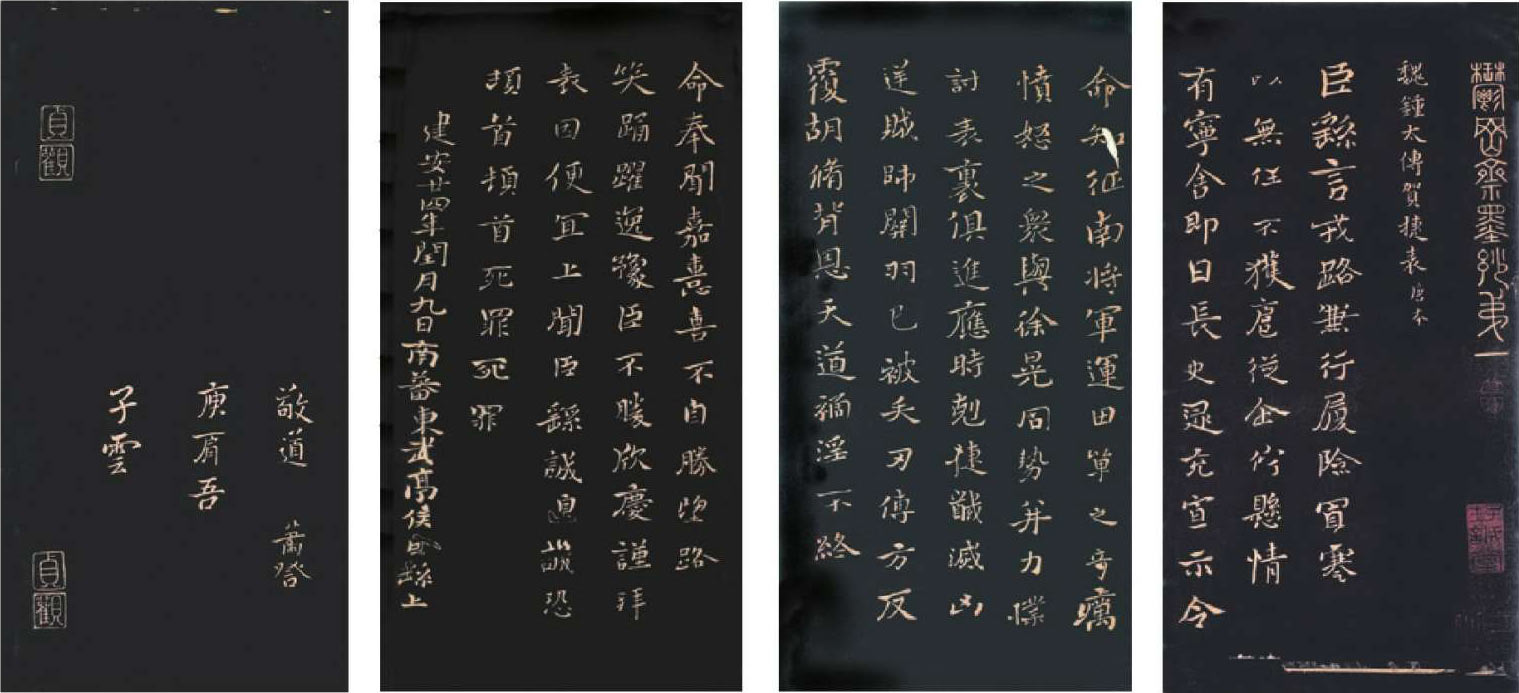 鬱岡齋墨妙第一
魏鍾太傅賀捷表唐本
臣繇言戎路兼行履險冒寒
以無任不獲扈從企佇懸情
有寧舍即日長史逯充宣示令
命知征南將軍運田單之奇厲
憤怒之衆與徐晃同勢并力撲
討表裏俱進應時剋捷馘滅凶
逆賊帥關羽已被矢刃傅方反
覆胡脩背恩天道禍淫不終
命奉聞嘉憙喜不自勝望路
笑踊躍逸豫臣不勝欣慶謹拜
表因便宜上聞臣繇誠皇誠恐
頓首頓首死罪死罪
建安廿四年閏月九日南蕃東武亭侯臣繇上
敬道 蕭
庾肩吾
子雲
貞觀
貞觀